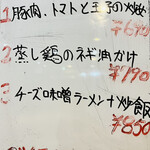 1 豚肉、トマトと玉子の炒め
¥690
2 蒸し鶏のネギ油かけ
¥790
3 チーズ味噌ラーメン+炒飯
¥850